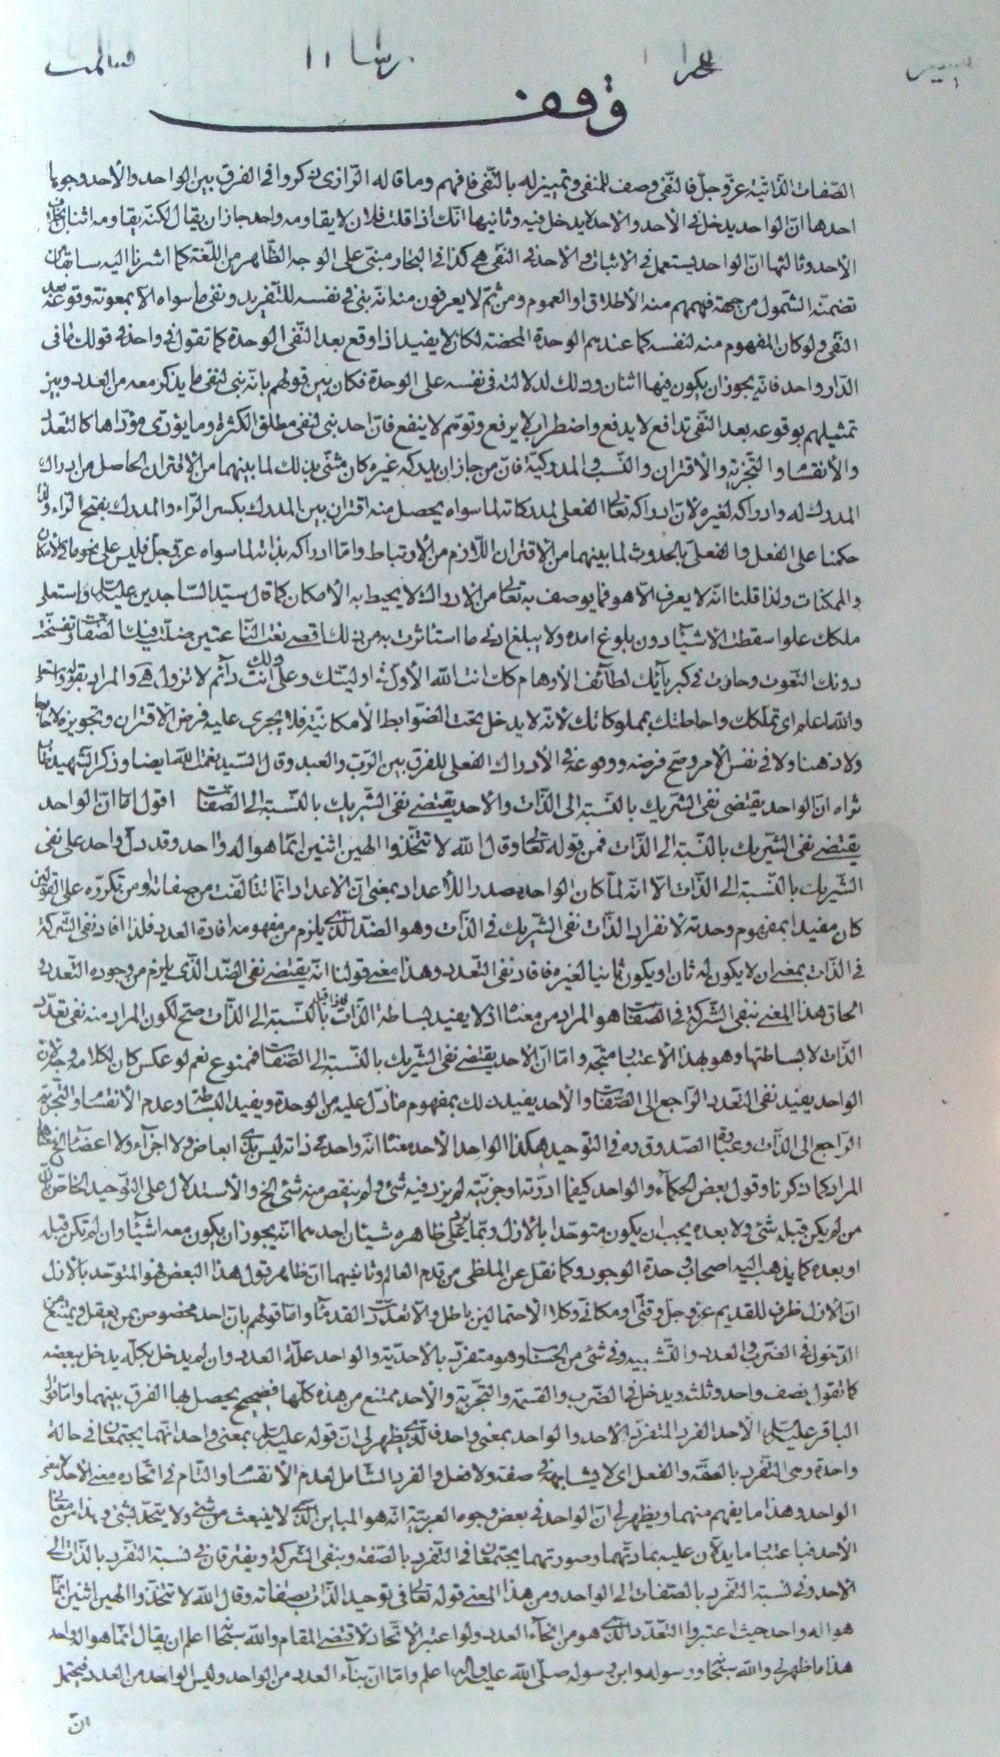 وقف
الصفات الذاتية عز وجل فالنفى وصف للمنفى وتمييز له بالنفى فافهم وما قاله الرازى ذكروا فى الفرق بين الواحد والأحد وجوها
احدها ان الواحد يدخل فى الأحد والأحد لا يدخل فيه وثانيها انك اذا قلت فلان لا يقاومه واحد جاز ان يقال لكنه يقاومه اثنان بخلاف
الأحد وثالثها ان الواحد يستعمل فى الاثبات والأحد فى النفى هى كذا فى البحار مبنى على الوجه الظاهر من اللغة كما اشرنا اليه سابقا
تضمنه الشمول من جهة فهمهم منه الأطلاق او العموم ومن ثم لا يعرفون منه انه بنى فى نفسه للتفريد ونفى ما سواه الا بمعونة وقوعه بعد
النفى ولو كان المفهوم منه لنفسه كما عندهم الوحدة المحضة لكان لا يفيد اذا وقع بعد النفى الا الوحدة كما تقول فى واحد فى قولك ما فى
الدار واحد فانه يجوز ان يكون فيها اثنان وذلك لدلالته فى نفسه على الوحدة فكان بين قولهم بانه بنى لنفى ما يذكر معه من العدد وبين
تمثيلهم بوقوعه بعد النفى تدافع لا يدفع واضطراب لا يرفع وتوهم لا ينفع فان احد بنى لنفى مطلق الكثرة وما يؤدى مؤداها كالتعدد
والأنقسام والتجزية والأقتران والنسب والمدركية فان من جاز ان يدركه غيره كان مثنى بذلك لما بينهما من الأقتران الحاصل من ادراك
المدرك له وادراكه لغيره لان ادراكه تعالى الفعلى لمدركاته لما سواه يحصل منه اقتران بين المدرك بكسر الراء والمدرك بفتح الراء ولذا
حكمنا على الفعل والفعلى بالحدوث لما بينهما من الأقتران اللازم من الأرتباط واما ادراكه بذاته لما سواه عز وجل فليس على نحو ما فى الأمكان
والممكنات ولذا قلنا انه لا يعرف الا هو فما يوصف به تعالى من الادراك لا يحيط به الأمكان كما قال سيد الساجدين عليه السلام واستعلى
ملكك علوا سقطت الاشياء دون بلوغ امده ولا يبلغ ادنى ما استأثرت به من ذلك اقصى نعت الناعتين ضلت فيك الصفات وتفسخت
دونك النعوت وحارت فى كبريائك لطائف الأوهام كذلك انت الله الأول فى اوليتك وعلى ذلك انت دائم لا تزول هى والمراد بقوله واستعلى
والله اعلم اى تملكك واحاطتك بمملوكاتك لانه لا يدخل تحت الضوابط الأمكانية فلا يجرى عليه فرض الاقتران وتجويزه لا خارجا
ولا ذهنا ولا فى نفس الأمر وصح فرضه ووقوعه فى الأدراك الفعلى للفرق بين الرب والعبد وقال السيد نعمت الله ايضا وذكر الشهيد طاب
ثراه ان الواحد يقتضى نفى الشريك بالنسبة الى الذات والاحد يقتضى نفى الشريك بالنسبة الى الصفات اقول اما ان الواحد
يقتضى نفى الشريك بالنسبة الى الذات فمن قوله تعالى وقال الله لا تتخذوا الهين اثنين انما هو اله واحد وقد دل واحد على نفى
الشريك بالنسبة الى الذات الا انه لما كان الواحد مصدر للأعداد بمعنى ان الاعداد انما تتالفت من صفاته او من تكرره على القولين
كان مفيدا بمفهوم وحدته لانفراد الذات نفى الشريك فى الذات وهو الضد الذى يلزم من مفهومه افادة العدد فلذا افاد نفى الشركة
فى الذات بمعنى ان لا يكون له ثان او يكون ثانيا لغيره فافاد نفى التعدد وهذا معنى قولنا انه يقتضى نفى الضد الذى يلزم من وجوده التعدد و
الحاق هذا المعنى بنفى الشركة فى الصفات هو المراد من معناه اذ لا يفيد بساطة الذات فاذا قيل بالنسبة الى الذات صح لكون المراد منه نفى تعدد
الذات لا بساطتها وهو بهذا الأعتبار متجه واما ان الاحد يقتضى نفى الشريك بالنسبة الى الصفات فممنوع نعم لو عكس كان لكلامه وجه لان
الواحد يفيد نفى التعدد الراجع الى الصفات والأحد يفيد ذلك بمفهوم ما دل عليه من الوحدة ويفيد البساطة وعدم الأنقسام والتجزية
الراجع الى الذات وعبارة الصدوق ره فى التوحيد هكذا الواحد الأحد معناه انه واحد فى ذاته ليس بذى ابعاض ولا اجزاء ولا اعضاء الخ
المراد كما ذكرنا وقول بعض الحكماء والواحد كيفما ادرته او جزيته لم يزد فيه شئ ولم ينقص منه شئ الخ والأستدلال على التوحيد الخاص بان
من لم يكن قبله شئ ولا بعده يجب ان يكون متوحدا بالأزل ربما يرد على ظاهره شيئان احدهما انه يجوز ان يكون معه اشياء وان لم تكن قبله
او بعده كما يذهب اليه اصحاب وحدة الوجود وكما نقل عن الملطى من قدم العالم وثانيهما ان ظاهر قول هذا البعض هو المتوحد بالأزل
ان الأزل ظرف للقديم عز وجل وقتى او مكانى وكلا الأحتمالين باطل والا تعدد القدماء واما قولهم بان احد مخصوص بمن يعقل ويمتنع من
الدخول فى الضرب والعدد والقسمة وفى شئ من الحساب وهو متفرد بالأحدية والواحد علة العدد وان لم يدخل بكله يدخل ببعضه
كما تقول نصف واحد وثلثه ويدخل فى الضرب والقسمة والتجزية والأحد ممتنع من هذه كلها فصحيح يحصل بها الفرق بينهما واما قول
الباقر عليه السلام الأحد الفرد المتفرد الأحد والواحد بمعنى واحد فالذى يظهر لى ان قوله عليه السلام بمعنى واحد انهما يجتمعان فى حالة
واحدة وهى التفرد بالصفة والفعل اى لا يشابهه فى صفته ولا فعل والفرد الشامل لعدم الأنقسام والتام فى اتحاده معنى الأحد غير
الواحد وهذا ما يفهم منهما ويظهر لى ان الواحد فى بعض وجوه العربية انه هو المباين الذى لا ينبعث من شئ ولا يتحد بشئ وهذا من معانى
الأحد فباعتبار ما يدلان عليه بمادتهما وصورتهما يجتمعان فى التفرد بالصفة وبنفى الشركة ويفترقان فى نسبة التفرد بالذات الى
الأحد وفى نسبة التفرد بالصفات الى الواحد ومن هذا المعنى قوله تعالى فى توحيد الذات بصفاته وقال الله لا تتخذوا الهين اثنين انما
هو اله واحد حيث اعتبروا التعدد الذى هو من انحاء العدد ولو اعتبر الأتحاد لاقتضى المقام والله سبحانه اعلم ان يقال انما هو اله احد
هذا ما ظهر لى والله سبحانه ورسوله وابن رسوله صلى الله عليه وآله اعلم واما ان بناء العدد من الواحد وليس الواحد من العدد فيحتمل
ان